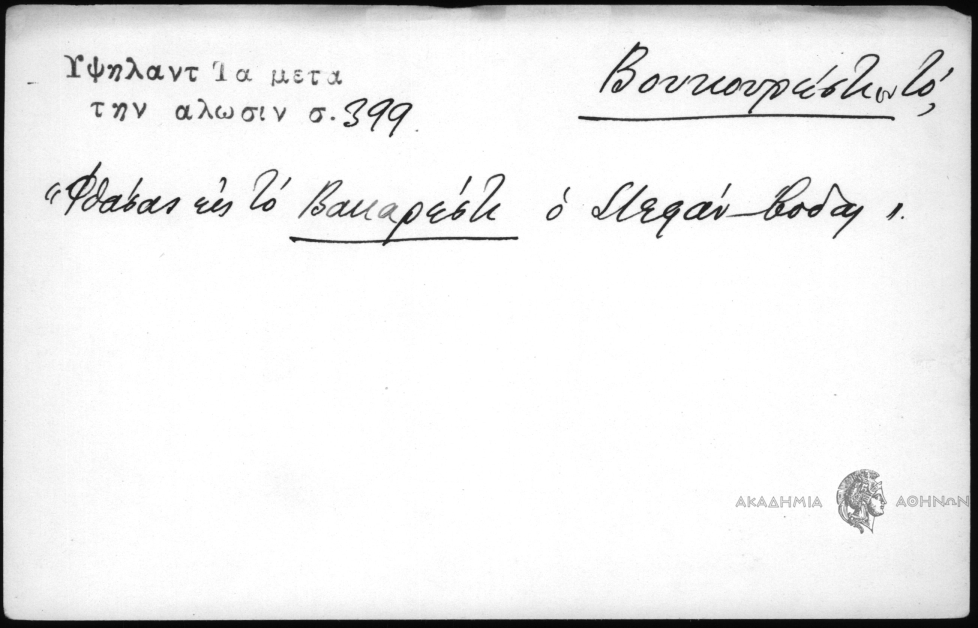 Υψηλαντ Τα μετα
την αλωσιν σ. 399.
Βουκουρέστιον τό,
"Φθάσας εἰς τό Βακαρέστι ὁ Στεφάν-βοδας".
ΑΚΑΔΗΜΙΑ ΑΘΗΝΩΝ